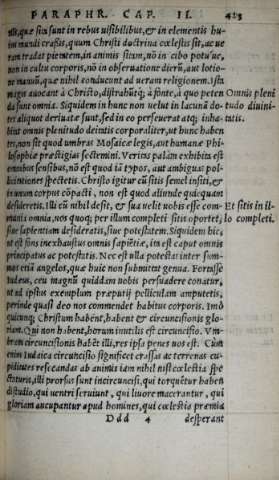 PARAPHR. CAP. II. 423
illis, quæ sita sunt in rebus uisibilibus, & in elementis hu-
ius mundi crassis, quum Christi doctrina cœlestis sit, ac ue
ram tradat pietatem, in animis sitam, nō in cibo potúue,
non in cultu corporis, nō in obseruatione dierū, aut lotio-
ne manuū, quæ nihil conducunt ad ueram religionem. Ista
magis auocant à Christo, distrahūtq́; à fonte, à quo peten
da sunt omnia. Siquidem in hunc non uelut in lacunā do-
tes aliquot deriuatæ sunt, sed in eo perseuerat atq; inha-
bitat omnis plenitudo deitatis corporaliter, ut hunc haben
tes, non sit quod umbras Mosaicæ legis, aut humanæ Phi-
losophiæ præstigias sectemini. Veritas palàm exhibita est
omnibus sensibus, nō est quod iā typos, aut ambiguas pol-
licitationes spectetis. Christo igitur cū sitis semel insiti, &
in unum corpus cōpacti, non est quod aliunde quicquam
desideretis. Illi cū nihil desit, & sua uelit uobis esse com-
munia omnia, nos quoq; per illum completi sitis oportet,
siue sapientiam desideratis, siue potestatem. Siquidem hic,
ut est fons inexhaustus omnis sapiētiæ, ita est caput omnis
principatus ac potestatis. Nec est ulla potestas inter
etiā angelos, quæ huic non submittat genua. Fortasse
Iudæus, ceu magnū quiddam uobis persuadere conatur,
ut ad ipsius exemplum præputij pelliculam amputetis,
perinde quasi deo nos commendet habitus corporis. Imò
quicunq; Christum habent, habent & circuncisionis glo-
riam. Qui non habent, horum inutilis est circuncisio. Vm-
bram circuncisionis habēt illi, res ipsa penes uos est. Cùm
enim Iudaica circuncisio significet crassas ac terrenas cu-
piditates resecandas ab animis iam nihil nisi cœlestia spe
ctaturis, illi prorsus sunt incircuncisi, qui torquētur habēdi
studio, qui uentri seruiunt, qui liuore macerantur, qui
gloriam aucupantur apud homines, qui cœlestia præmia
Ddd 4 desperant
Omnis pleni
tudo diuini-
tatis.
Et sitis in il-
lo completi.